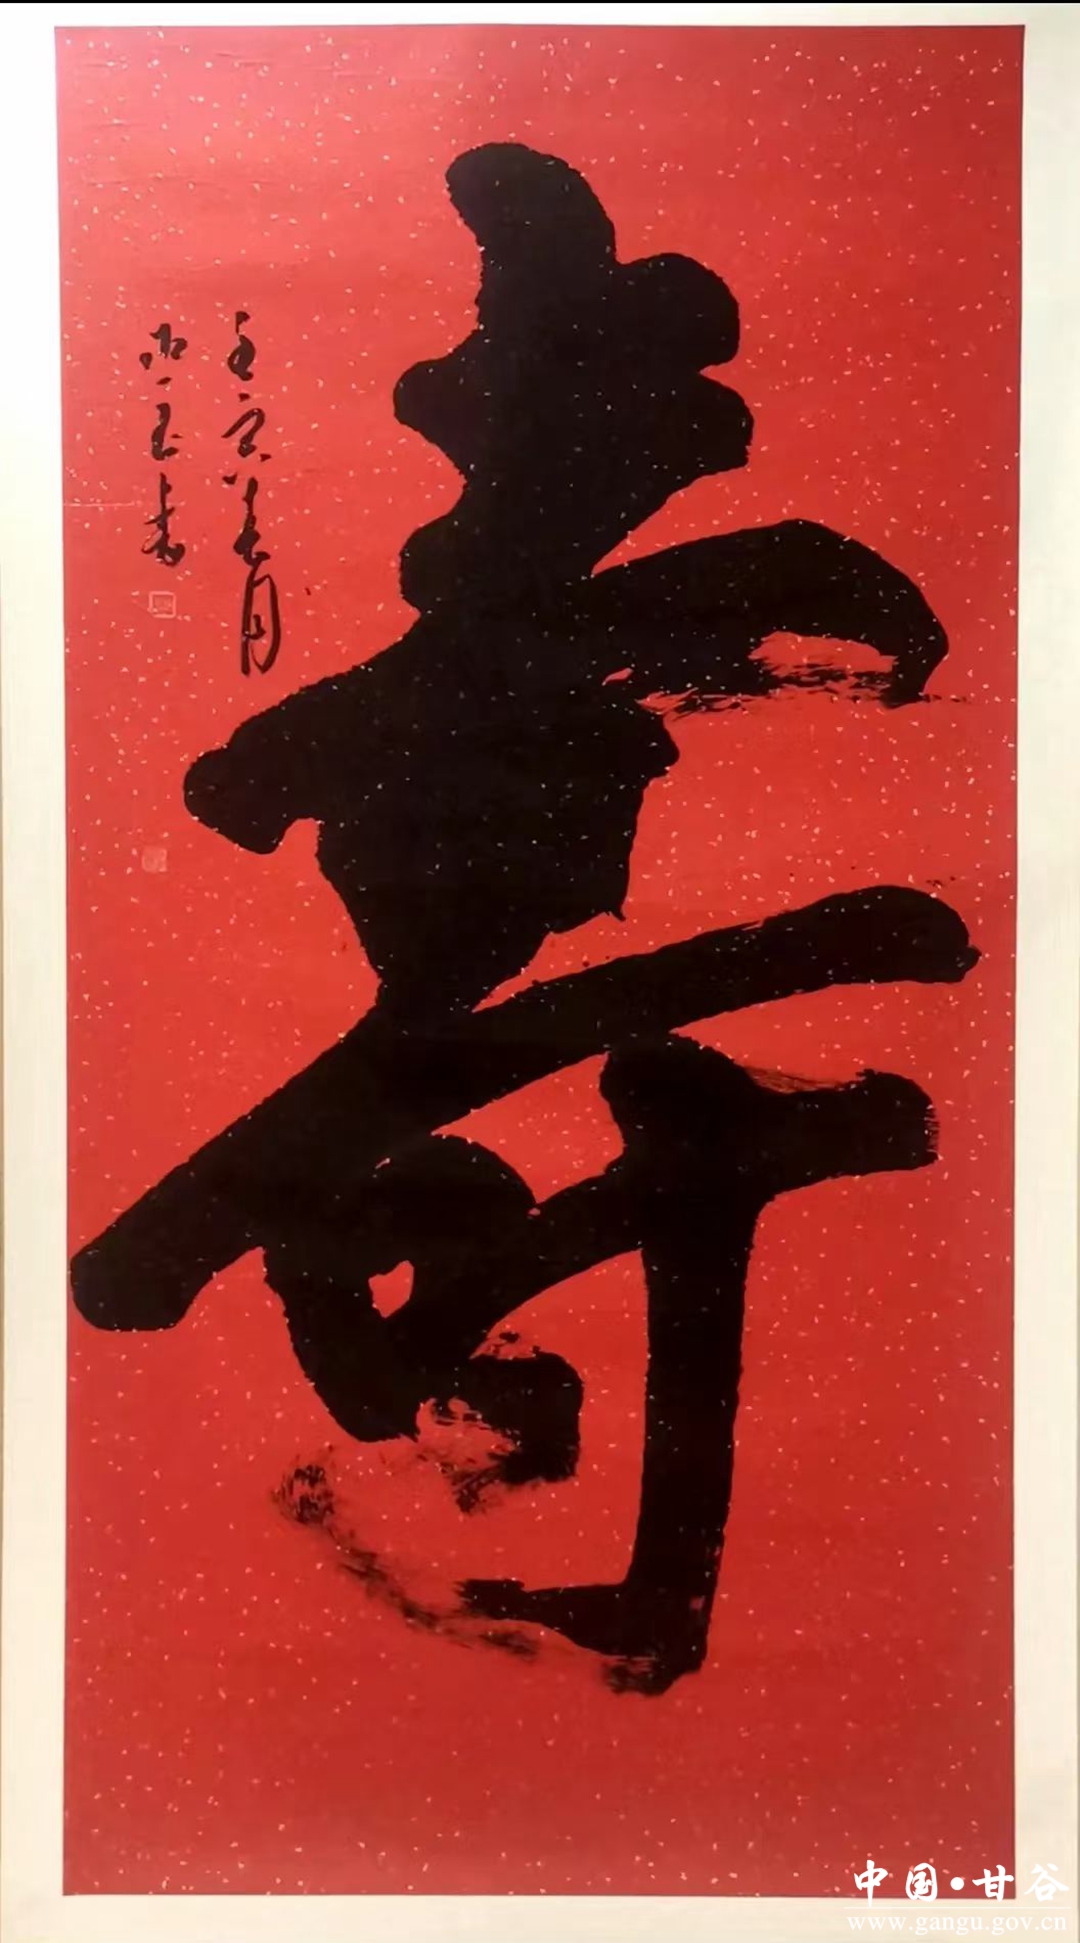 壽
壬寅春月
中国·甘谷
www.gangu.gov.cn